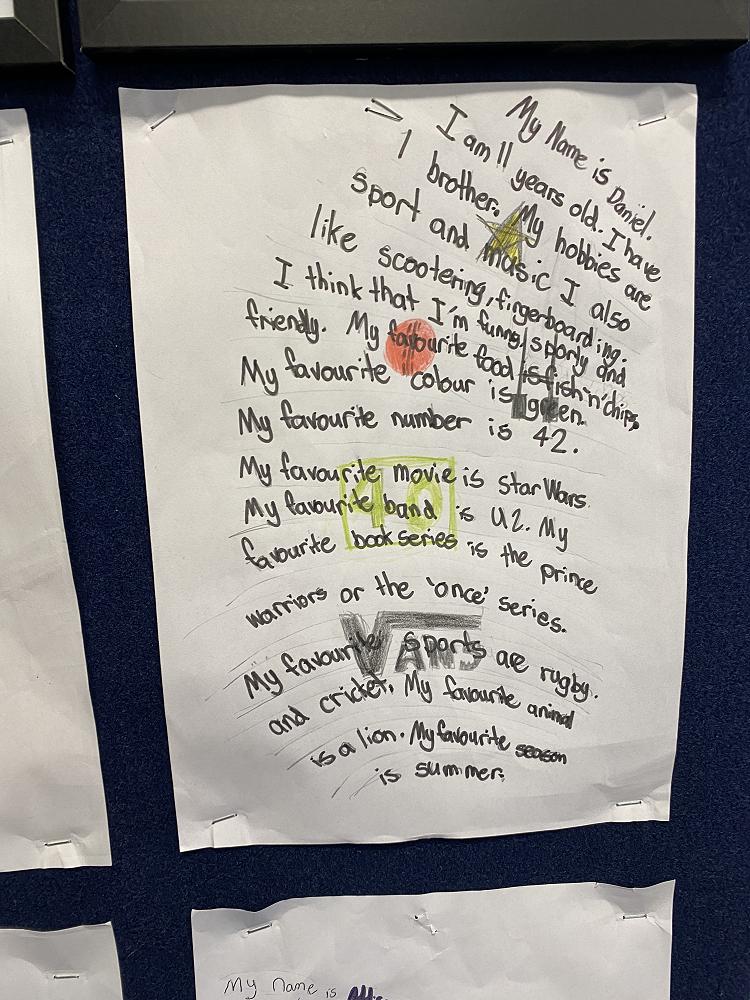 My Name is Daniel.
I am 11 years old. I have
1 brother. My hobbies are
sport and music I also
like scootering, fingerboarding.
I think that I'm funny, sporty and
friendly. My favourite food is fish'n'chips,
My favourite colour is green.
My favourite number is 42.
My favourite movie is Star Wars.
My favourite band is U2. My
40
favourite book series is the prince
warriors or the 'once' series.
VANS
My favourite sports are rugby.
and cricket. My favourite animal
is a lion. My favourite season
is summer.
My Name is